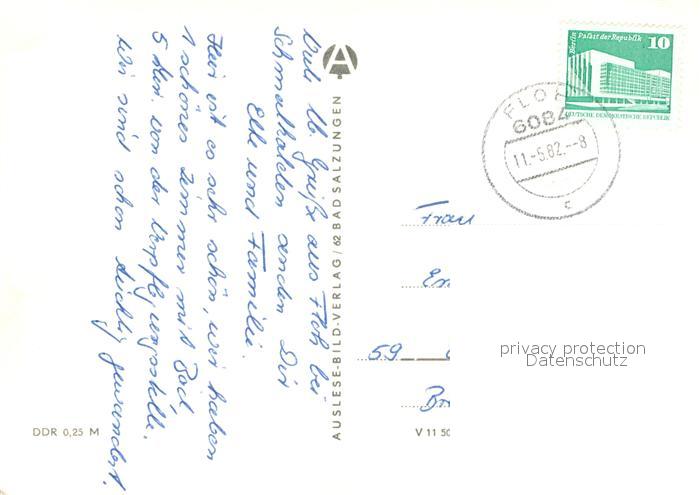 Viele lb. Grüße aus Floh bei
Schmalkalden senden Dir
Elke und Familie.
Hier ist es sehr schön, wir haben
1 schönes Zimmer mit Bad,
5 Min. von der Verpflegungsstelle.
Wir sind schon tüchtig gewandert.
A
AUSLESE-BILD-VERLAG/62 BAD SALZUNGEN
DDR 0,25 M
V 11 50
Berlin Palast der Republik
10
DEUTSCHE DEMOKRATISCHE REPUBLIK
FLOH
6084
11.-5.82.--8
c
Frau
59
privacy protection
Datenschutz